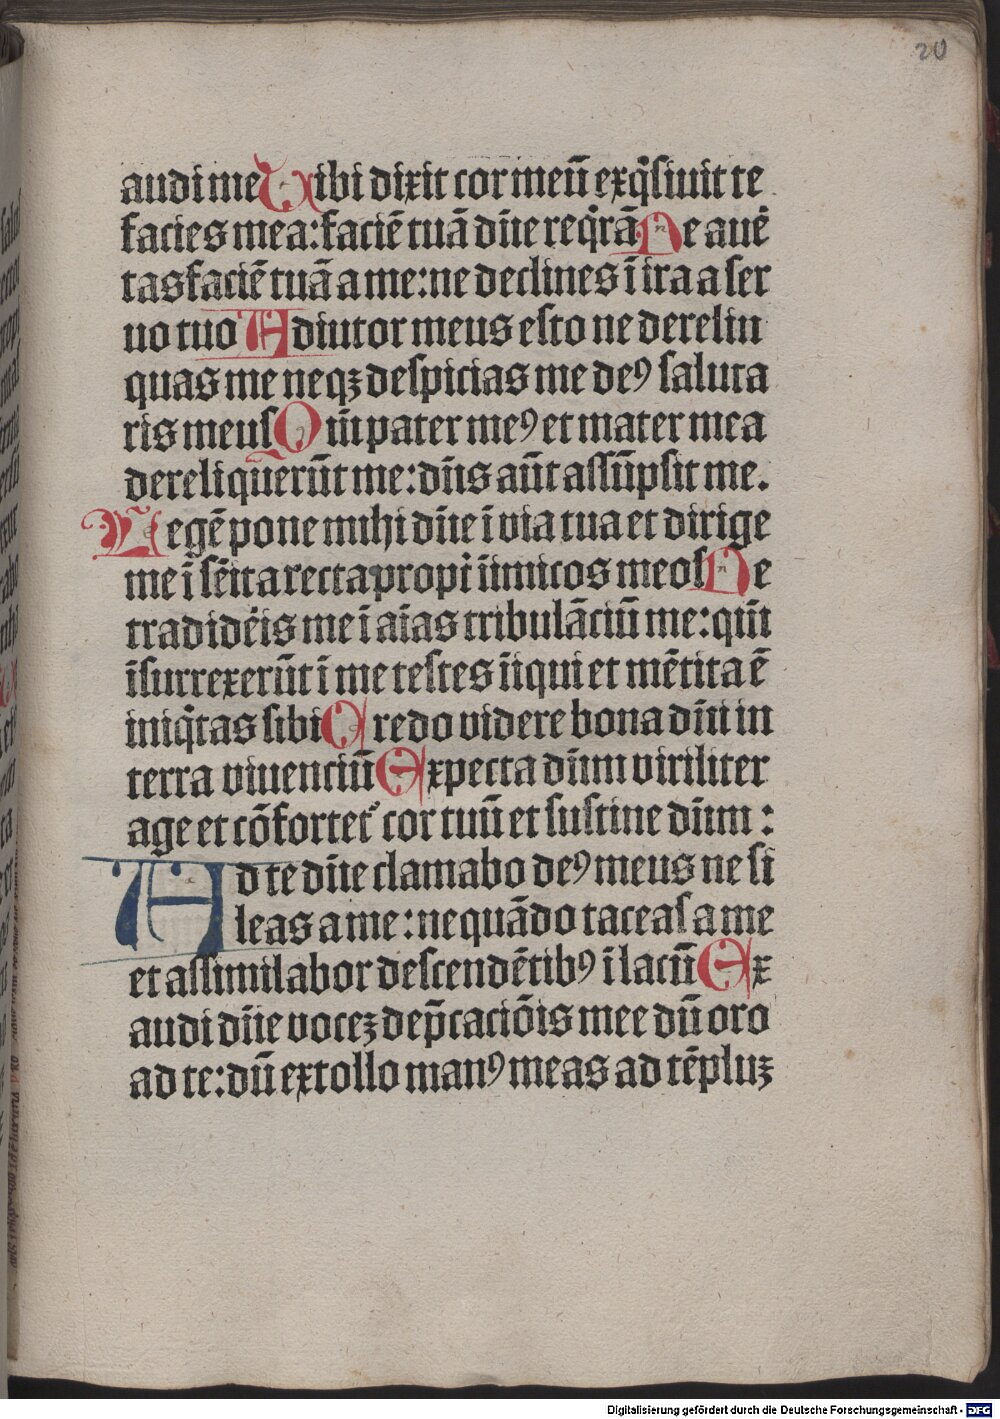 20
audi me Tibi dixit cor meū exq̇siuit te
facies mea: faciē tuā dn̄e reqͥrā Ne auē
tas faciē tuā a me: ne declines ī ira a ser
uo tuo Adiutor meus esto ne derelin
quas me neqꝫ despicias me deꝰ saluta
ris meus Qm̄ pater meꝰ et mater mea
dereliquerūt me: dn̄s aūt assūpsit me.
Legē pone mihi dn̄e ī via tua et dirige
me ī sēita recta propṫ iīmicos meos Ne
tradidēis me ī aīas tribulāciū me: qm̄
īsurrexerūt ī me testes iīqui et mētita ē
iniqͥtas sibi Credo videre bona dn̄i in
terra viuenciū Expecta dn̄m viriliter
age et cōfortet᷑ cor tuū et sustine dn̄m :
Ad te dn̄e clamabo deꝰ meus ne si
leas a me: nequādo taceas a me
et assimilabor descendētibꝰ ī lacū Ex
audi dn̄e voceꝫ dep̄caciōis mee dū oro
ad te: dū extollo manꝰ meas ad tēpluꝫ
Digitalisierung gefördert durch die Deutsche Forschungsgemeinschaft - DFG